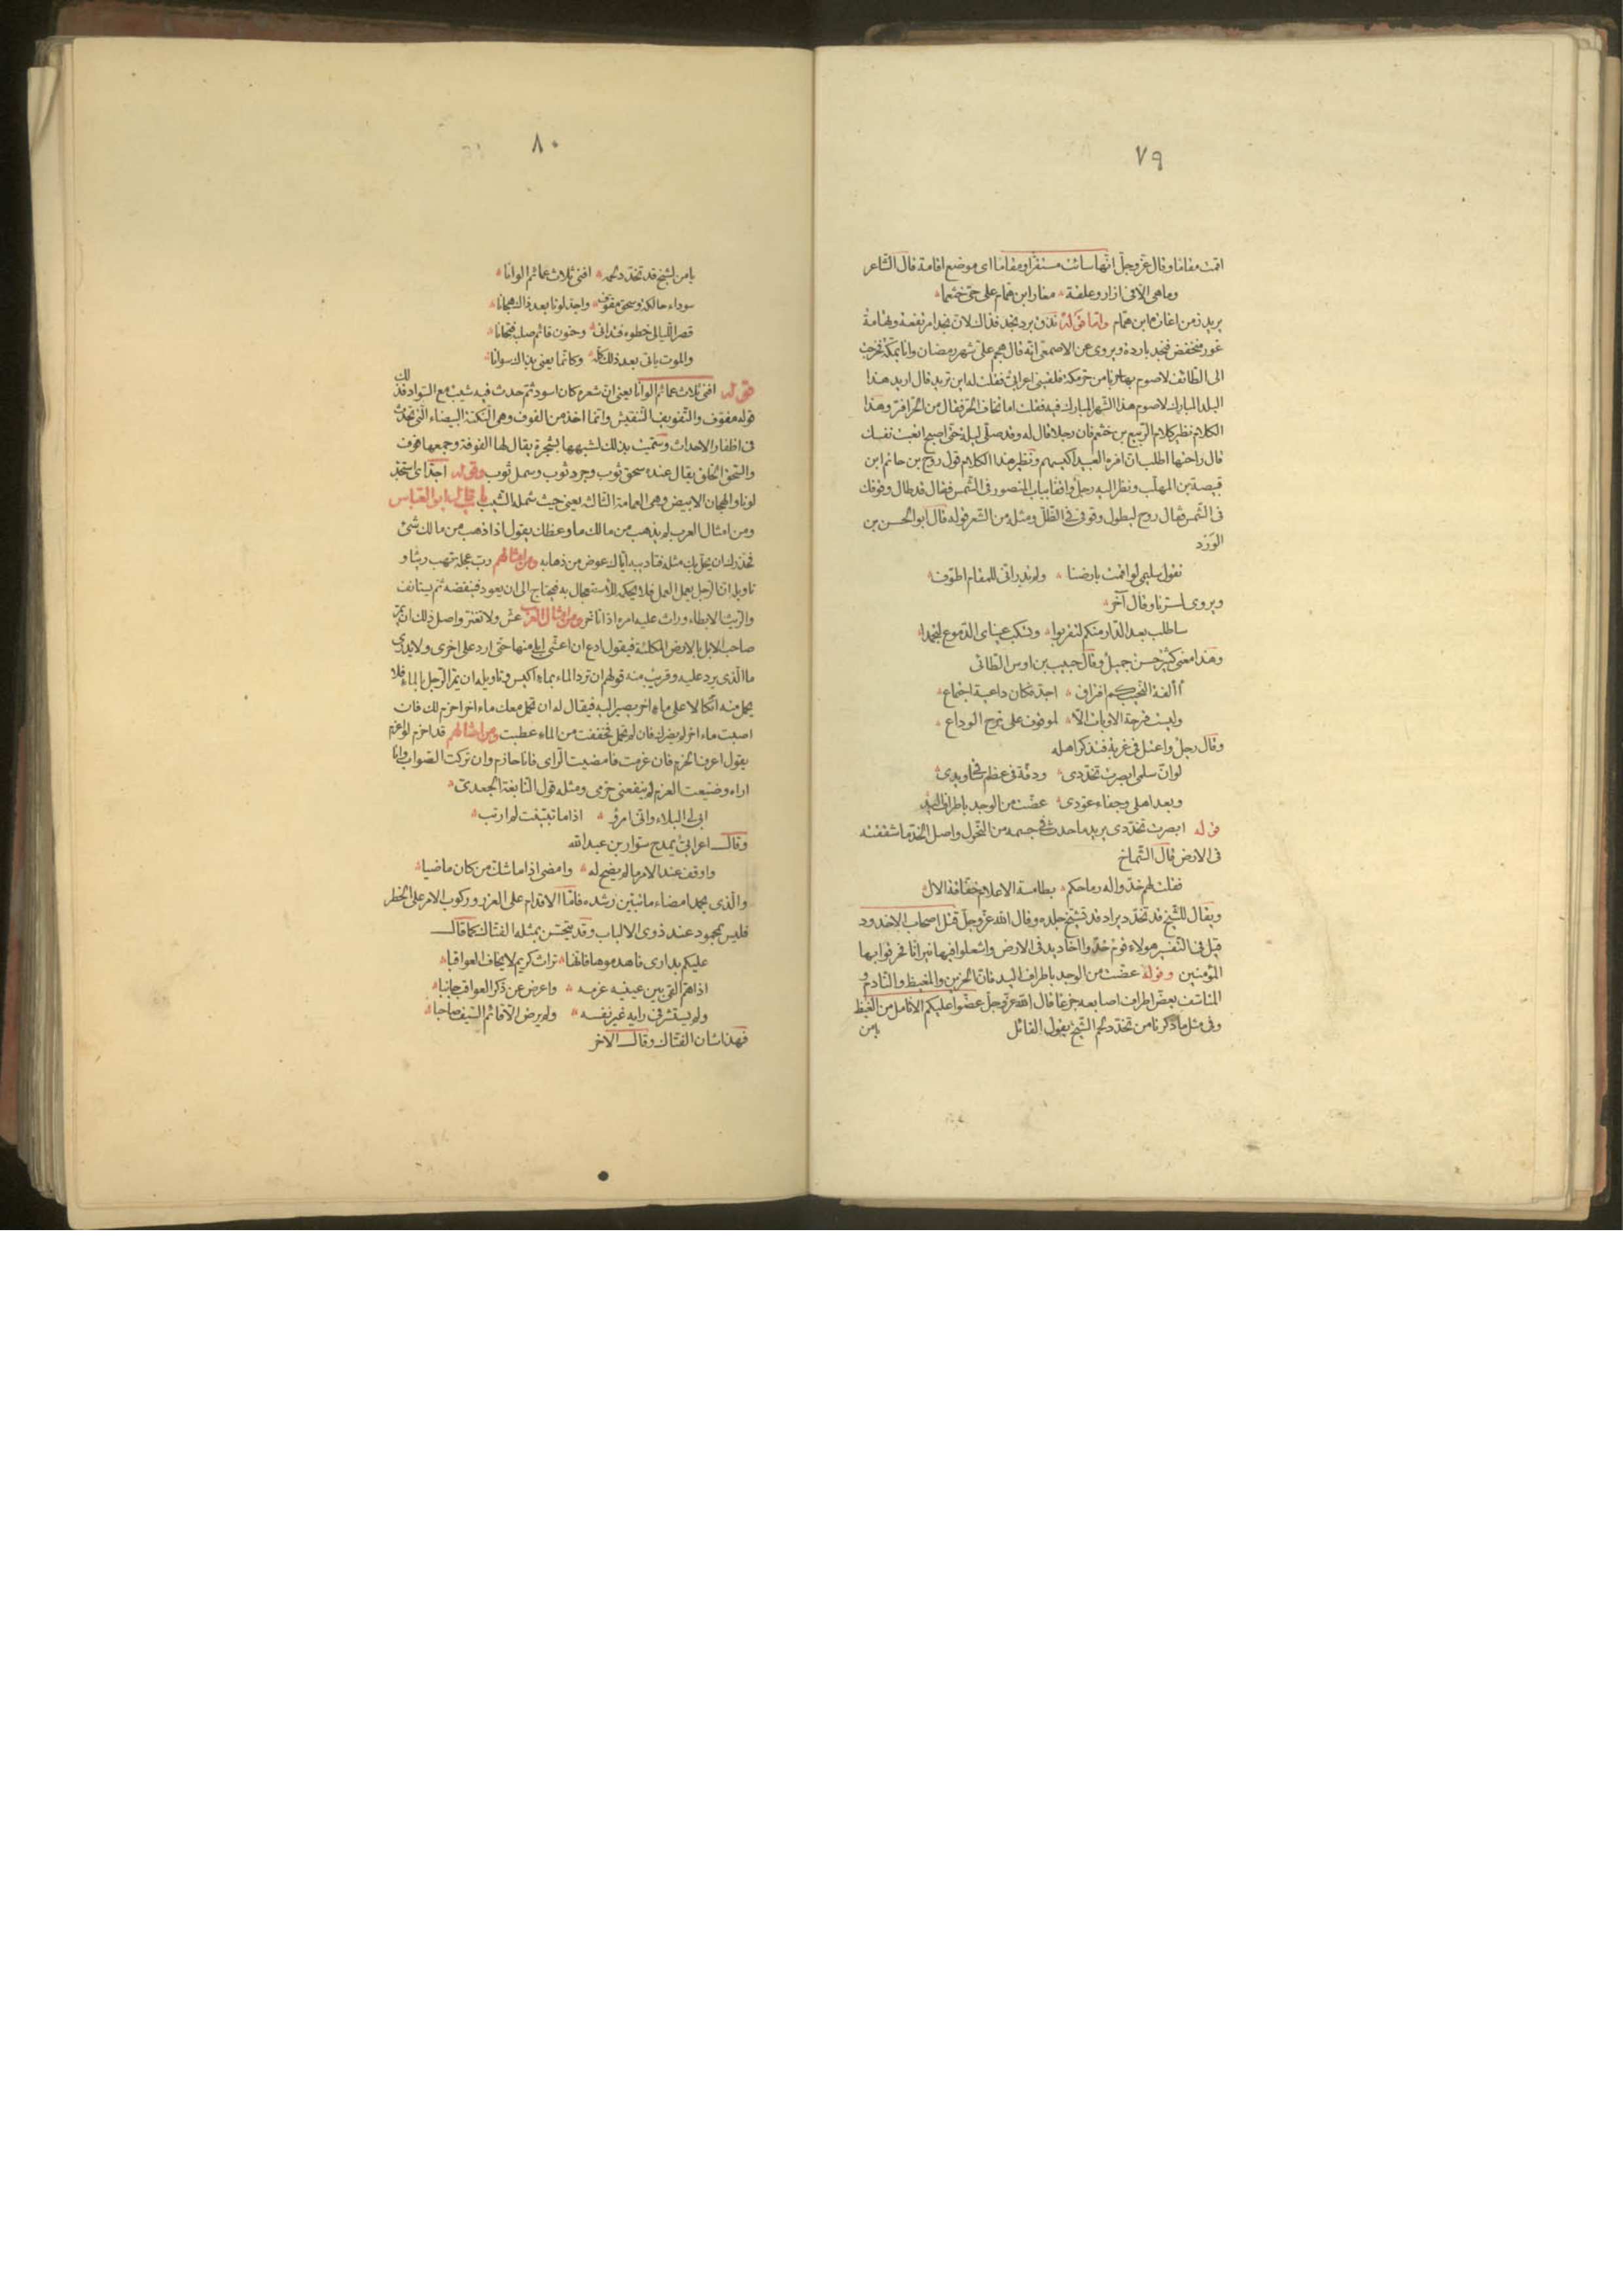 ٧٩
اقمت مقاما وقال عزّ وجلّ انّها سائت مستقرا ومقاما اى موضع اقامة قال الشّاعر
وما هى الّا فى ازار وعلقة مغار ابن همّام على حىّ خثعما
يريد زمن اغارة ابن همّام وامّا قوله تذرى برد نجد فذاك لانّ نجدا مرتفعة وتهامة
غور منخفض فنجد باردة ويروى عن الاصمعى انّه قال هجم علىّ شهر رمضان وانا بمكّة فخرجت
الى الطائف لاصوم بها هربا من حرّ مكّة فلقينى اعرابىّ فقلت له اين تريد قال اريد هذا
البلد المبارك لاصوم هذا الشّهر المبارك فيه فقلت اما تخاف الحرّ فقال من الحرّ افرّ وهذا
الكلام نظير كلام الرّبيع بن خثيم فان رجلا قال له وقد صلّى ليلة حتّى اصبح اتعبت نفسك
قال راحتها اطلب انّ افره العبيد اكيسهم ونظير هذا الكلام قول روح بن حاتم ابن
قبيصة بن المهلّب ونظر اليه رجل واقفا بباب المنصور فى الشّمس فقال قد طال وقوفك
فى الشّمس فقال روح ليطول وقوفى فى الظّلّ ومثله من الشّعر قوله قال ابو الحسن بن
الورد
تقول سليمى لو اقمت بارضنا ولم تدر انّى للمقام اطوّف
ويروى لسرنا وقال آخر
ساطلب بعد الدّار منكم لتقربوا وتسكب عيناى الدّموع لتجمدا
وهذا معنى كثير حسن جميل وقال حبيب بن اوس الطائى
أألفة النّحيب كم افتراق اجدّ فكان داعية اجتماع
وليست فرحة الاوبات الّا لموقوف على ترح الوداع
وقال رجل واعتل فى غربة فتذكر اهله
لو انّ سلمى ابصرت تخدّدى ودقّة فى عظم ساقى ويدى
وبعد اهلى وجفاء عوّدى عضّت من الوجد باطراف اليد
قوله ابصرت تخدّدى يريد ما حدث فى جسمه من النّحول واصل الخدّ ما شققته
فى الارض قال الشّماخ
فقلت لهم خدّوا له برماحكم بطامسة الاعلام خفّاقة الال
ويقال للشّيخ قد تخدّد يراد قد تشنّج جلده وقال الله عزّ وجلّ قتل اصحاب الاخدود
قيل فى التّفسير هؤلاء قوم خدّوا اخاديد فى الارض واشعلوا فيها نيرانا فحرقوا بها
المؤمنين وقوله عضّت من الوجد باطراف اليد فانّ الحزين والمغيظ والنّادم و
المتاسّف يعضّ اطراف اصابعه جزعا قال الله عزّ وجلّ عضّوا عليكم الانامل من الغيظ
وفى مثل ما ذكرنا من تخدّد لحم الشّيخ يقول القائل
يا من
٨٠
يا من لشيخ قد تخدّد لحمه افنى ثلاث عمائم الوانا
سوداء حالكة وسحق مفوّف واجدّ لونا بعد ذاك هجانا
قصر اللّيالى خطوه فتدانى وحنون قائم صلبه فتحانا
والموت ياتى بعد ذلك كلّه وكانّما يعنى بذاك سوانا
قوله افنى ثلاث عمائم الوانا يعنى انّ شعره كان اسود ثمّ حدث فيه شيب مع السّواد فذلك
قوله مفوّف والتّفويف التّنقيش وانّما اخذ من الفوف وهى النّكتة البيضاء الّتى تحدث
فى اظفار الاحداث وسمّيت بذلك لشبهها بشجرة يقال لها الفوفة وجمعها فوف
والسّحق الخلق يقال عنده سحق ثوب وجرد ثوب وسمل ثوب وقوله اجدّ اى استجدّ
لونا والهجان الابيض وهى العمامة الثّالثة يعنى حيث شمله الشّيب باب قال ابو العبّاس
ومن امثال العرب لم يذهب من مالك ما وعظك يقول اذا ذهب من مالك شىء
فحذّرك ان يحلّ بك مثله فتاديبه ايّاك عوض من ذهابه ومن امثالهم ربّ عجلة تهب ريثا و
تاويله انّ الرّجل يعمل العمل فلا يحكمه للاستعجال به فيحتاج الى ان يعود فينقضه ثم يستانف
والرّيث الابطاء وراث عليه امره اذا تاخر ومن امثال العرب عشّ ولا تغترّ واصل ذلك ان يمرّ
صاحب الابل بالارض المكلئة فيقول ادع ان اعشّى ابلى منها حتّى ارد على اخرى ولا يدرى
ما الّذى يرد عليه وقريب منه قولهم ان ترد الماء بماء اكيس وتاويله ان يمرّ الرّجل بالماء فلا
يحمل منه اتّكالا على ماء اخر يصير اليه فيقال له ان تحمل معك ماء احزم لك فان
اصبت ماء اخر لم يضرك فان لم تحمل فخفقت من الماء عطبت ومن امثالهم قد احزم لو اعزم
يقول اعرف الحزم فان عزمت فامضيت الرّاى فانا حازم وان تركت الصّواب وانا
اراه وضيّعت العزم لم ينفعنى حزمى ومثله قول النّابغة الجعدىّ
ابى لى البلاء وانّى امرؤ اذا ما تبيّنت لم ارتب
وقال اعرابىّ يمدح سوّار بن عبد الله
واوقف عند الامر ما لم يضح له وامضى اذا ما شكّ من كان ماضيا
والّذى يحمد امضاء ما تبيّن رشده فامّا الاقدام على الغرر وركوب الامر على الخطر
فليس بمحمود عند ذوى الالباب وقد يتحسّن بمثله الفتّاك كما قال
عليكم بدارى فاهدموها فانّها تراث كريم لا يخاف العواقبا
اذا همّ القى بين عينيه عزمه واعرض عن ذكر العواقب جانبا
ولم يستشر فى رايه غير نفسه ولم يرض الّا قائم السّيف صاحبا
فهذا شان الفتّاك وقال الاخر